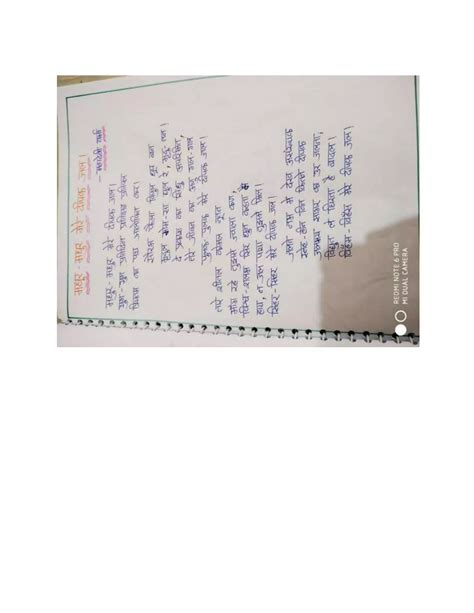 मधुर - मधुर मेरे दीपक जल।
- महादेवी वर्मा
मधुर - मधुर मेरे दीपक जल।
युग - युग प्रतिदिन प्रतिक्षण प्रतिपल
प्रियतम का पथ आलोकित कर।
सौरभ फैला विपुल धूप बन
मृदुल मोम-सा घुल रे, मृदु-तन।
दे प्रकाश का सिंधु अपरिमित,
तेरे जीवन का अणु गल-गल
पुलक-पुलक मेरे दीपक जल।
सारे शीतल कोमल नूतन
माँग रहे तुझसे ज्वाला कण,
विश्व-शलभ सिर धुन कहता मैं
हाय, न जल पाया तुझमें मिल।
सिहर-सिहर मेरे दीपक जल।
जलते नभ में देख असंख्यक
स्नेह-हीन नित कितने दीपक
जलमय सागर का उर जलता,
विद्युत ले घिरता है बादल।
विहँस-विहँस मेरे दीपक जल।
REDMI NOTE 6 PRO
MI DUAL CAMERA